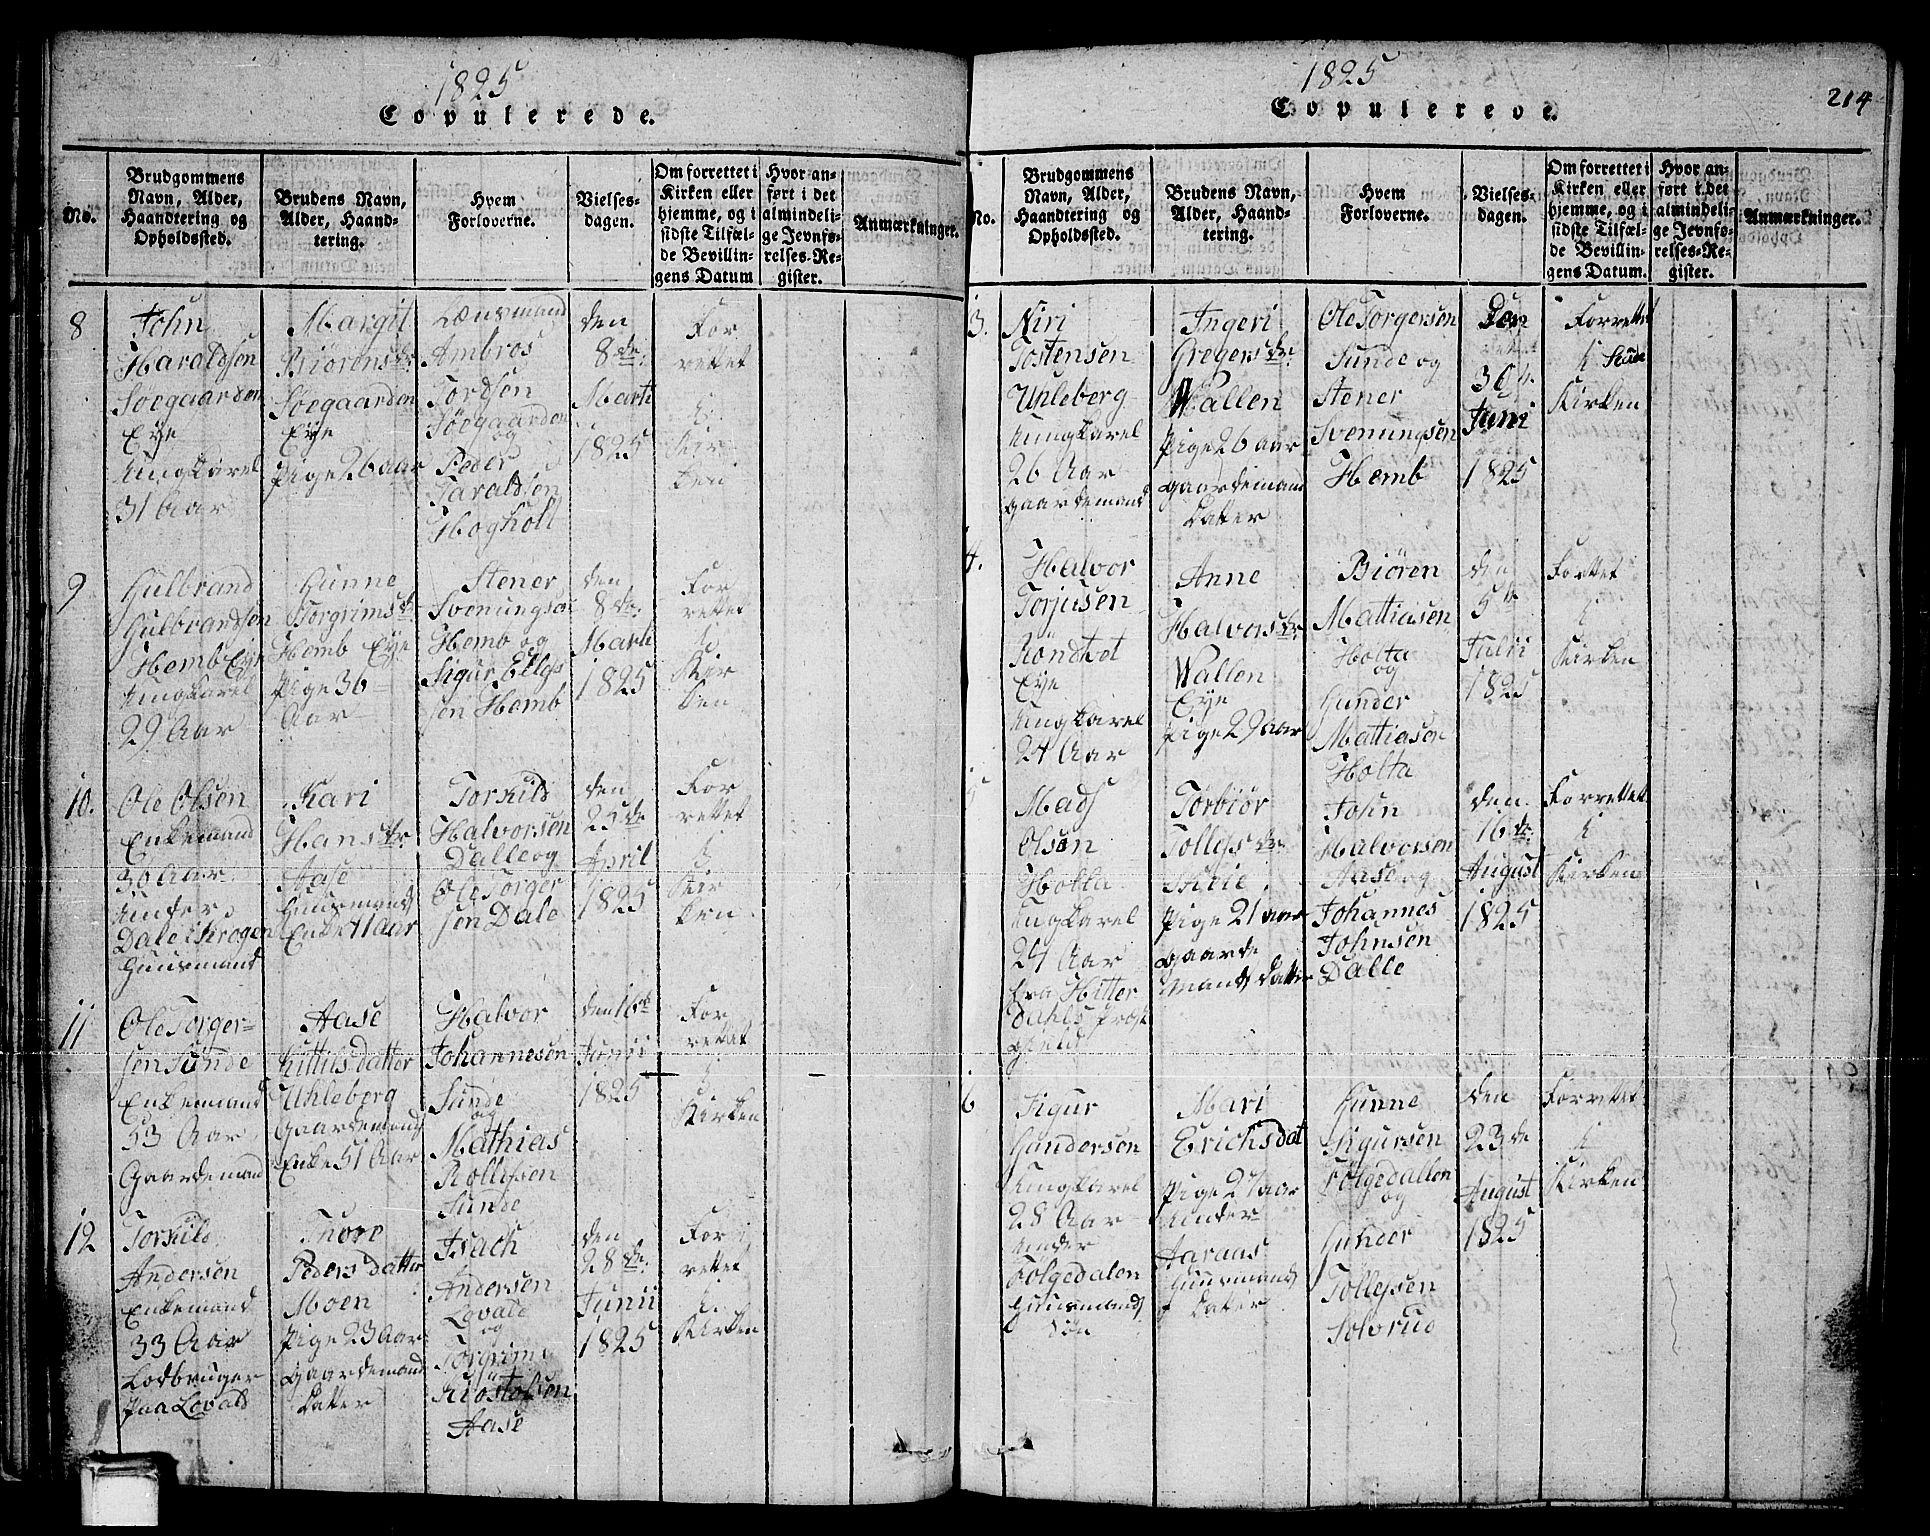 1825
Copulerede.
No.
Brudgommens
Navn, Alder,
Haandtering og
Opholdssted.
Brudens Navn,
Alder, Haand-
tering.
Hvem
Forloverne.
Vielses-
dagen.
Om forrettet i
Kirken eller
hjemme, og i
sidste Tilfæl-
de Bevillin-
gens Datum
Hvor an-
ført i det
almindeli-
ge Jevnfø-
relses-Re-
gister.
Anmærkninger.
8
John
Haraldsen
Søegaarden
Eye
Ungkarel
31 Aar
Margit
Biørensdr.
Søegaarden
Eye
Pige 26 aar
Lænsmand
Ambros
Tordsen
Søegaarden
og
Peder
Taraldsen
Hogholt
den
8de
Marti
1825
For
rettet
i
Kir
ken
9
Gulbrand
Gulbrandsen
Hemb Eye
Ungkarel
29 Aar
Gunne
Torgrimsdr.
Hemb Eye
Pige 36
Aar
Stener
Svenungsen
Hemb og
Sigur Ellefs
sen Hemb
den
8de
Marti
1825
For
rettet
i
Kir
ken
10.
Ole Olsen
Enkemand
30 Aar
Under
Dale i Krogen
Huusmand
Kari
Hansdr.
Aase
Huusmands
Enke 41 aar
Torkild
Halvorsen
Dalle og
Ole Torger
sen Dale
den
25de
April
1825
For
rettet
i
Kir
ken
11
Ole Torger-
sen Sunde
Enkemand
53 Aar
Gaardemand
Aase
Kittilsdatter
Uhleberg
Gaardemands
Enke 51 Aar
Halvor
Johannesen
Sunde
og
Mathias
Rollefsen
Sunde
den 16de
Junii
1825
For
rettet
i
Kirken
12
Torkild
Andersen
Enkemand
33 Aar
Lodbruger
paa Lovald
Thore
Pedersdatter
Moen
Pige 23 Aar
Gaardemand
Datter
Isach
Andersen
Lovald
og
Torgrim
Kiøstolsen
Aase
den
28de
Junii
1825
For
rettet
i
Kirken
1825
Copulerede.
214
No.
Brudgommens
Navn, Alder,
Haandtering og
Opholdssted.
Brudens Navn,
Alder, Haand-
tering.
Hvem
Forloverne.
Vielses-
dagen.
Om forrettet i
Kirken eller
hjemme, og i
sidste Tilfæl-
de Bevillin-
gens Datum.
Hvor an-
ført i det
almindeli-
ge Jevnfø-
relses-Re-
gister.
Anmærkninger.
3.
Niri
Tostensen
Uhleberg
Ungkarel
26 Aar
Gaardemand
Ingeri
Gregersdr.
Wallen
Pige 26 aar
Gaardemand
Datter
Ole Torgersen
Sunde og
Stener
Svenungsen
Hemb
Den
30te
Juni
1825
Forrettet
i
Kirken
4.
Halvor
Torjusen
Røndtvet
Eye
Ungkarel
24 Aar
Anne
Halvorsdr.
Wallen
Eye
Pige 29 aar
Biøren
Mattiasen
Holta
og
Gunder
Mattiasen
Holta
den
5te
Julii
1825
Forrettet
i
Kirken
5
Mads
Olsen
Holta
Ungkarel
24 Aar
fra Hitter
Dahls Præste
gield
Torbiør
Tollefsdr.
Pige 21 aar
Gaarde
Mands Datter
John
Halvorsen
Aase og
Johannes
Johnsen
Dalle
den
16de
August
1825
Forrettet
i
Kirken
6
Sigur
Gundersen
Ungkarel
28 Aar
Under
Folgedalen
Huusmands
Søn
Mari
Erichsdat
Pige 27 aar
Under
Aaraas
Huusmands
Datter
Gunne
Sigursen
Følgedallen
og
Gunder
Tollefsen
Solvrud
den
23de
August
1825
Forrettet
i
Kirken